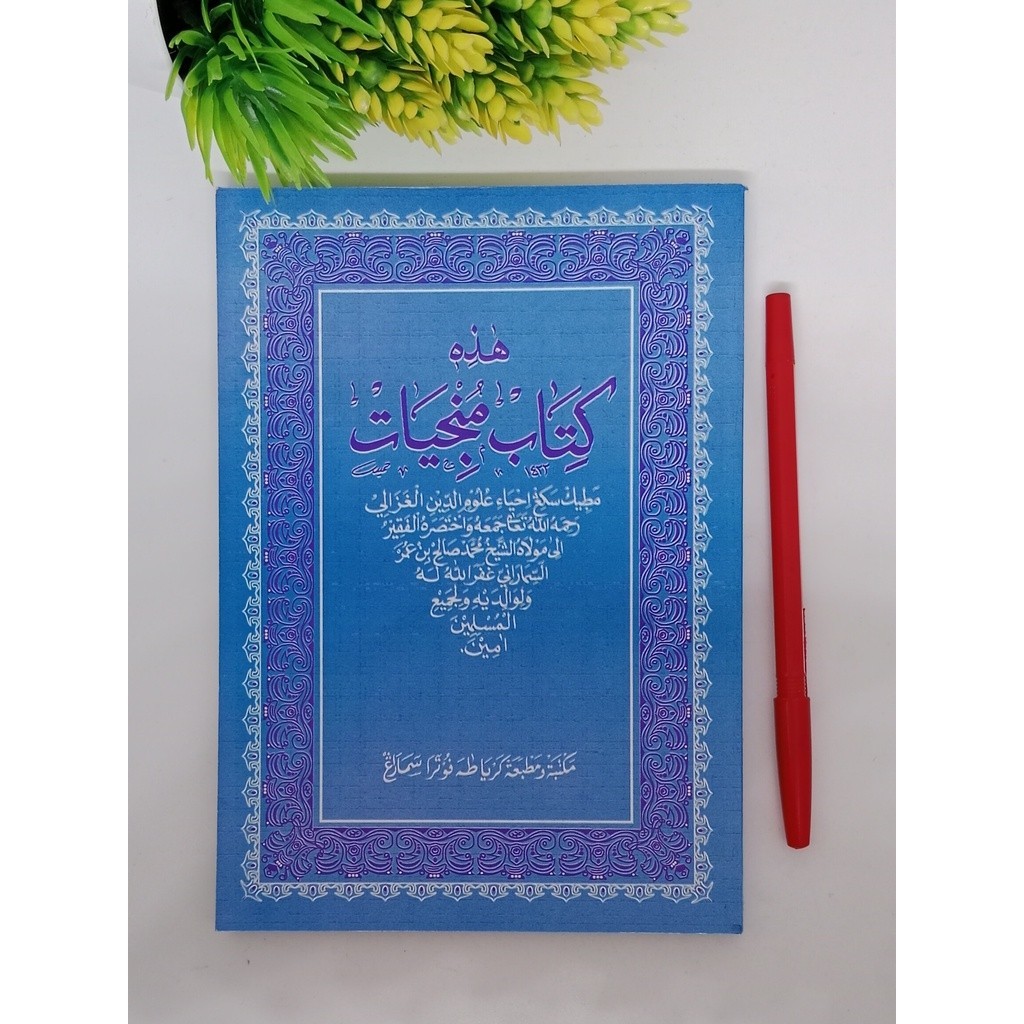 هٰذِهِ
كِتَابْ مُنْجِيَاتْ
١٤٢٢
مَطِيكْ سَكِڠْ اِحْيَاءِ عُلُومِ الدِّيْنِ الْغَزَالِي
رَحِمَهُ اللهُ تَعَالَى جَمَعَهُ وَاخْتَصَرَهُ الْفَقِيْرُ
اِلَى مَوْلَاهُ الشَّيْخُ مُحَمَّدْ صَالِحْ بِنْ عُمَرَ
السَّمَارَانِي غَفَرَ اللهُ لَهُ
وَلِوَالِدَيْهِ وَلِجَمِيْعِ
الْمُسْلِمِيْنَ
اٰمِيْنَ.
مَكْتَبَة وَمَطْبَعَة كَرْيَا طٰهَ فُوْتْرَا سَمَارَاڠْ